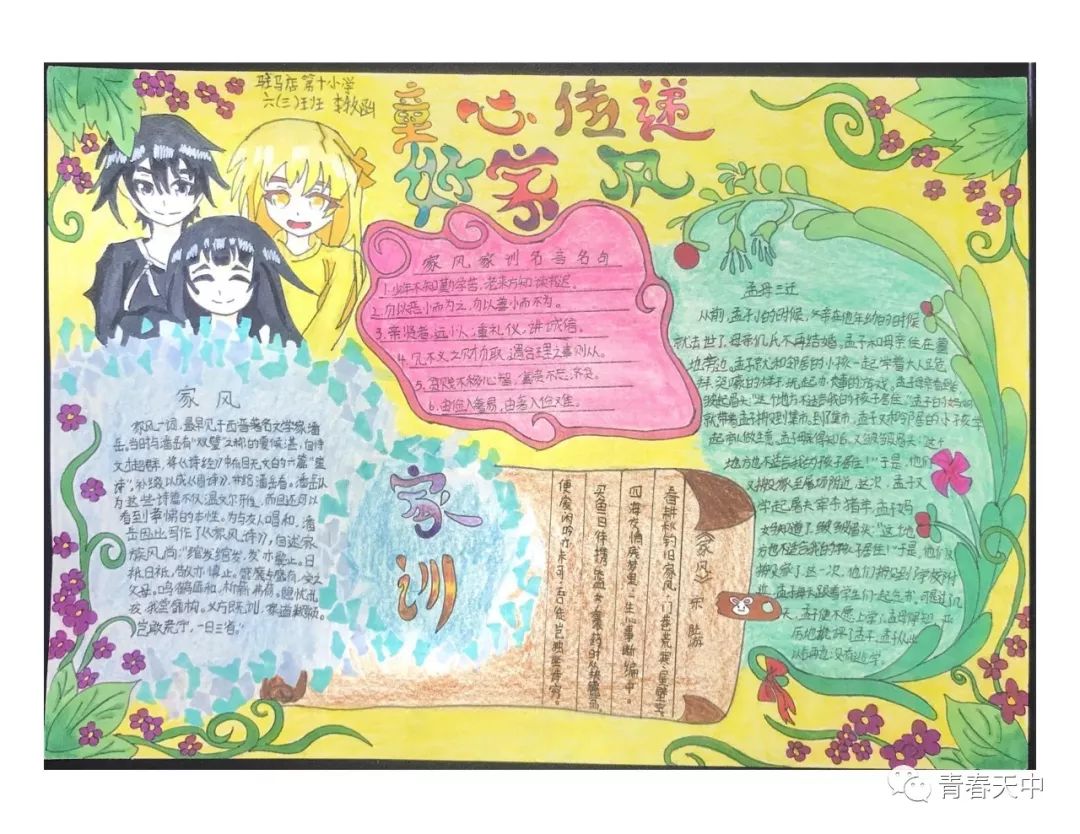 驻马店第十小学
六(三)班 李牧函
童心传递
好家风
家风家训名言名句
1.少年不知勤学苦,老来方知读书迟。
2.勿以恶小而为之,勿以善小而不为。
3.亲贤者,远小人;重礼仪,讲诚信。
4.凡不义之财勿取,遇合理之事则从。
5.贫贱不移心智,富贵不忘济贫。
6.由俭入奢易,由奢入俭难。
家风
家风一词,最早见于西晋著名文学家潘
岳。当时与潘岳有“双璧”之称的夏侯湛,自恃
文才超群,将《诗经》中有目无文的六篇“笙
诗”,补缀以成《周诗》,并给潘岳看。潘岳认
为这些诗篇不仅温文尔雅,而且还可以
看到孝悌的本性。为与友人唱和,潘
岳因此写作了《家风诗》,自述家
族风尚:“绾发绾发,发亦鬓止。日
祗日祗,敬亦慎止。
父母。鸣鹤匪和,析薪弗荷。隐忧孔
疚,我堂靡构。义方既训,家道颖颖。
岂敢荒宁,一日三省。”
家训
《家风》 宋
春耕秋钓旧家风,门巷荒寒
四海交情残梦里,一生心事断编中。
买鱼日待携篮女,
便废闲吟亦未可,古徒岂独坐诗穷。
孟母三迁
从前,孟子小的时候,父亲在他年幼的时候
就去世了,母亲仉氏不再结婚,孟子和母亲住在墓
地旁边。孟子就和邻居的小孩一起学着大人跪
拜、哭嚎的样子,玩起办丧事的游戏。孟子母亲看到
皱起眉头:“这个地方不适合我的孩子居住!”孟子的妈妈
就带着孟子搬到集市,到了集市,孟子又和邻居的小孩学
起商人做生意。孟母知道后,又皱皱眉头:“这个
地方也不适合我的孩子居住!”于是,他们
又搬家至屠场附近,这次,孟子又
学起屠夫宰杀猪羊,孟子妈
妈知道了,皱皱眉头:“这个地
方也不适合我的孩子居住!”于是,他们又
搬家了。这一次,他们搬到了学校附
近,孟子每天跟着学生们一起念书,可是过几
天,孟子便不想上学,
以后再也没有逃学。
青春天中